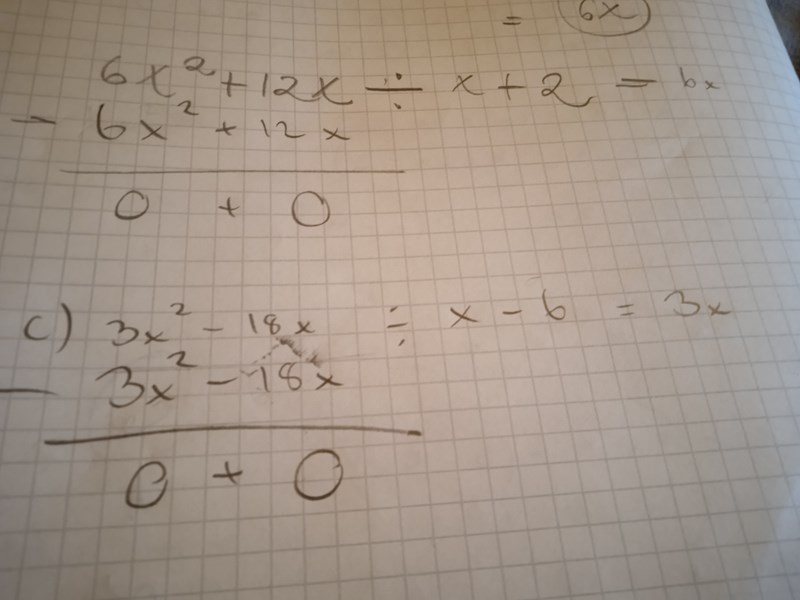 = 6x
6x² + 12x ÷ x + 2 = 6x
- 6x² + 12x
0 + 0
c) 3x² - 18x ÷ x - 6 = 3x
- 3x² - 18x
0 + 0